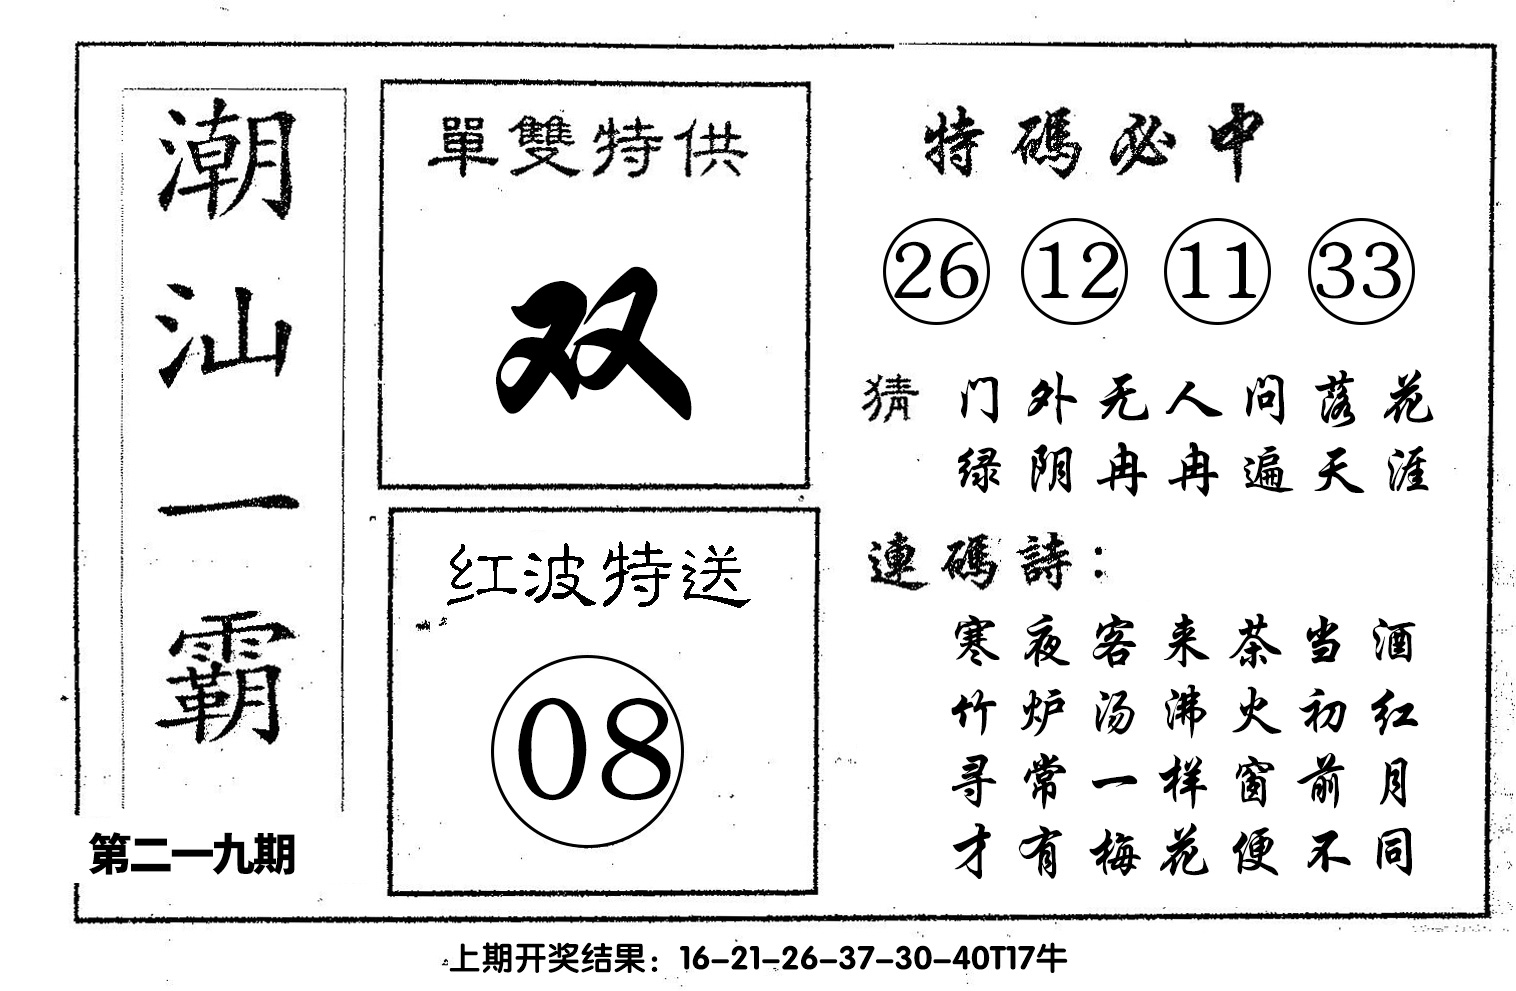 潮汕一霸
第二一九期
單雙特供
双
红波特送
08
特碼必中
26 12 11 33
猜 门外无人问落花
绿阴冉冉遍天涯
連碼詩：
寒夜客来茶当酒
竹炉汤沸火初红
寻常一样窗前月
才有梅花便不同
上期开奖结果：16-21-26-37-30-40T17牛